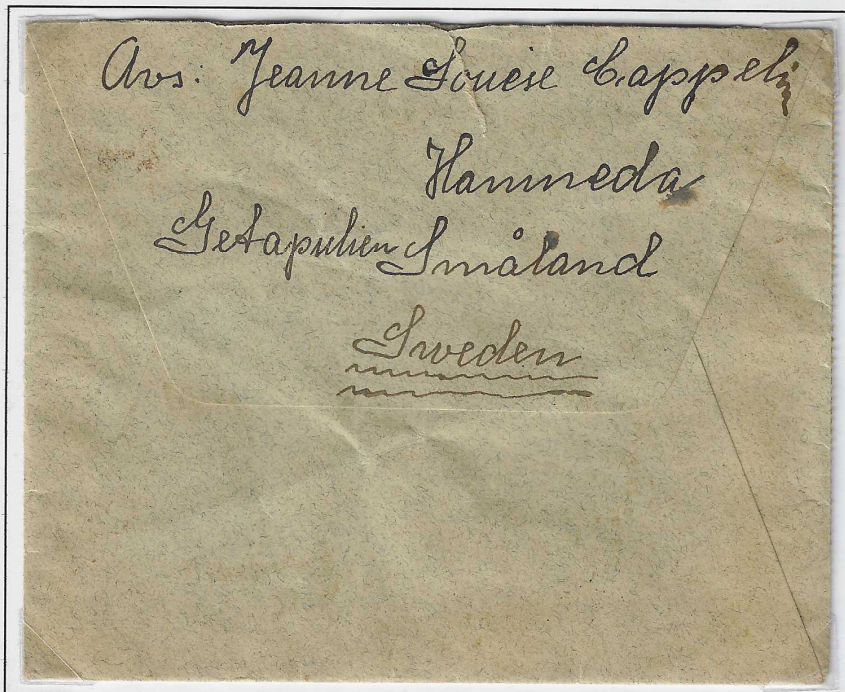 Avs: Jeanne Louise Cappelin
Hamneda
Getapulien Småland
Sweden